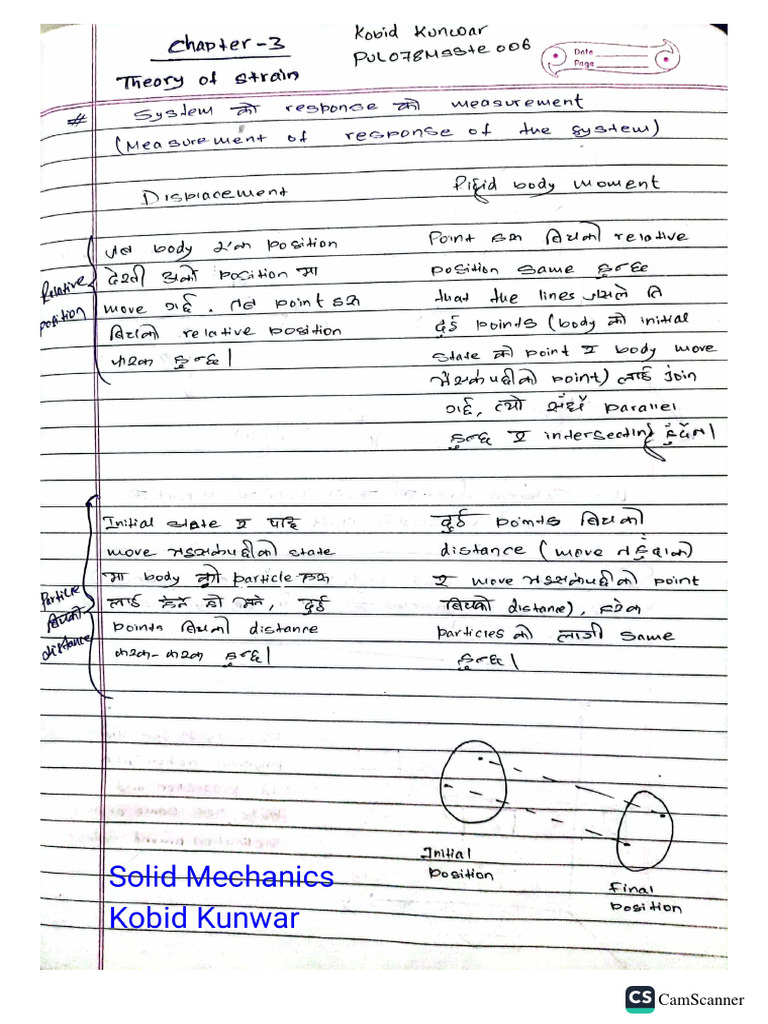 Chapter-3
Kobid Kunwar
PUL078MSStE006
Date
Page
Theory of strain
# System को response को measurement
(Measurement of response of the system)
Displacement
Rigid body moment
Relative position
जब body एक position
देखी अर्को position मा
move गर्छ, तब point हरू
बिचको relative position
फरक हुन्छ।
Point हरू बिचको relative
position same हुन्छ
that the lines जसले ति
दुई points (body को initial
state को point र body move
भैसकेपछीको point) लाई join
गर्छ, त्यो सधैं parallel
हुन्छ र intersecting हुँदैन।
Particle बिचको distance
Initial state र पछि
move भइसकेपछीको state
मा body को particle हरू
लाई हेर्ने हो भने, दुई
points बिचको distance
फरक-फरक हुन्छ।
दुई points बिचको
distance (move नहुँदाको
र move भइसकेपछीको point
बिचको distance), हरेक
particles को लागी same
हुन्छ।
Initial position
Final position
Solid Mechanics
Kobid Kunwar
CS CamScanner